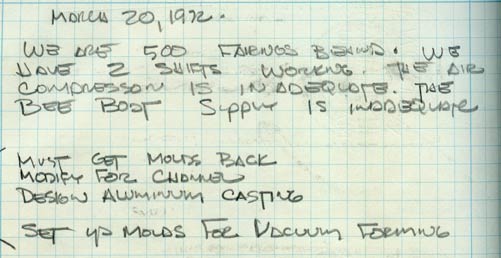 MARCH 20, 1972.
WE ARE 500 FAIRINGS BEHIND. WE
HAVE 2 SHIFTS WORKING. THE AIR
COMPRESSOR IS INADEQUATE. THE
BEE BOAT SUPPLY IS INADEQUATE
MUST GET MOLDS BACK
MODIFY FOR CHANNEL
DESIGN ALUMINUM CASTING
SET UP MOLDS FOR VACUUM FORMING